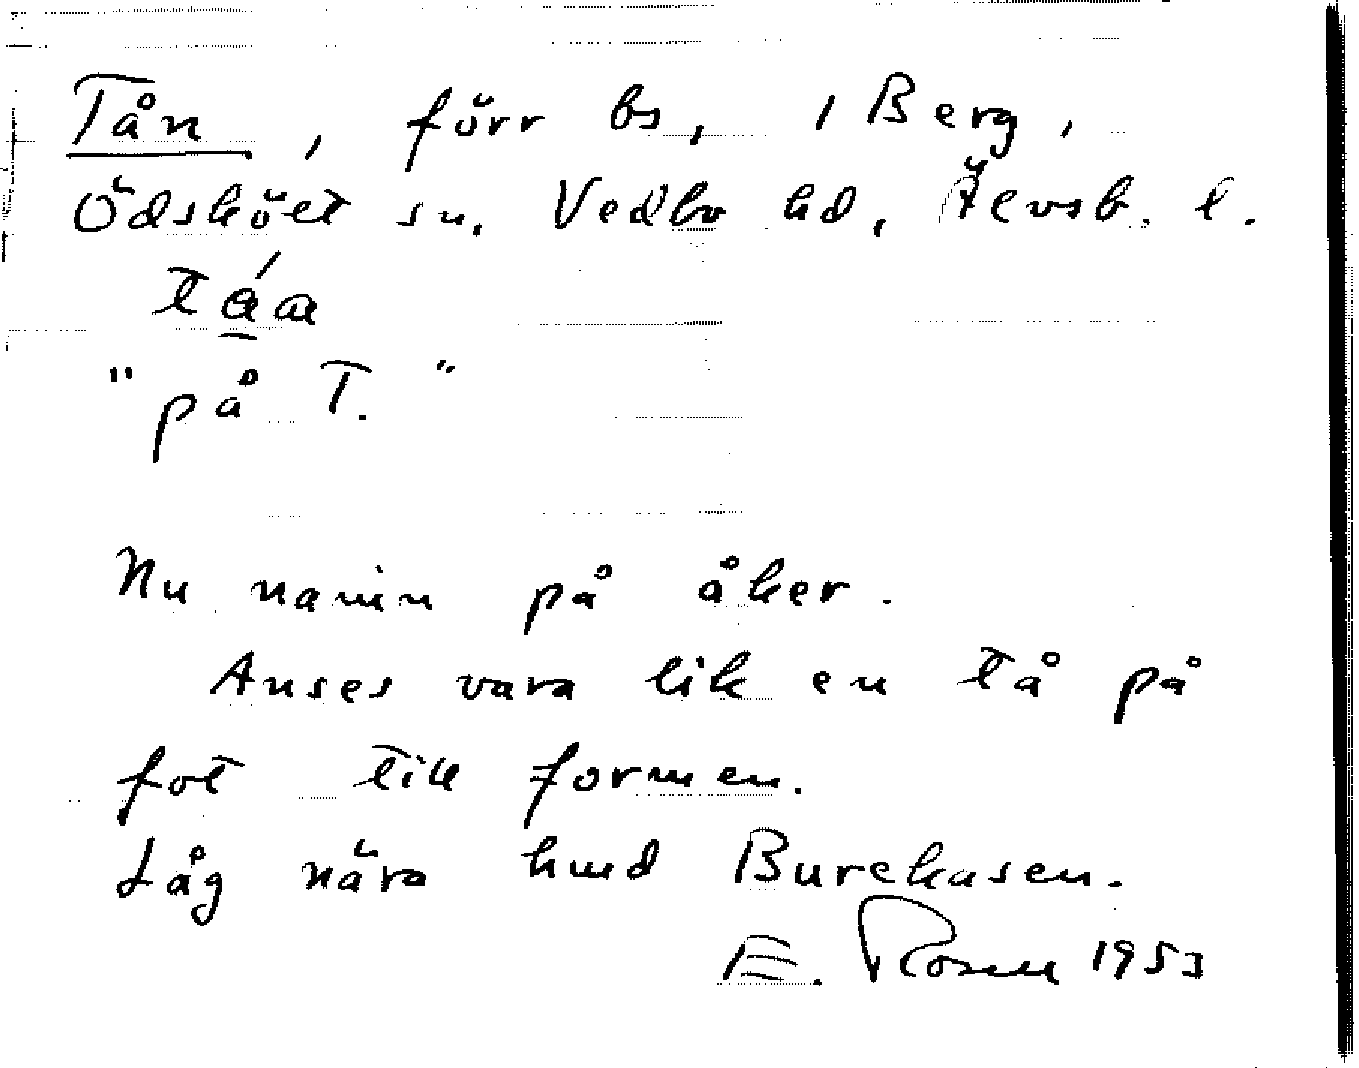 Tån, förr bs, i Berg,
Ödsköet sn, Vedbo hd, Älvsb. l.
"på T."
Nu namn på åker.
Anses vara lik en tå på
fot till formen.
Låg nära hmd Burekasen.
E. Rosell 1953